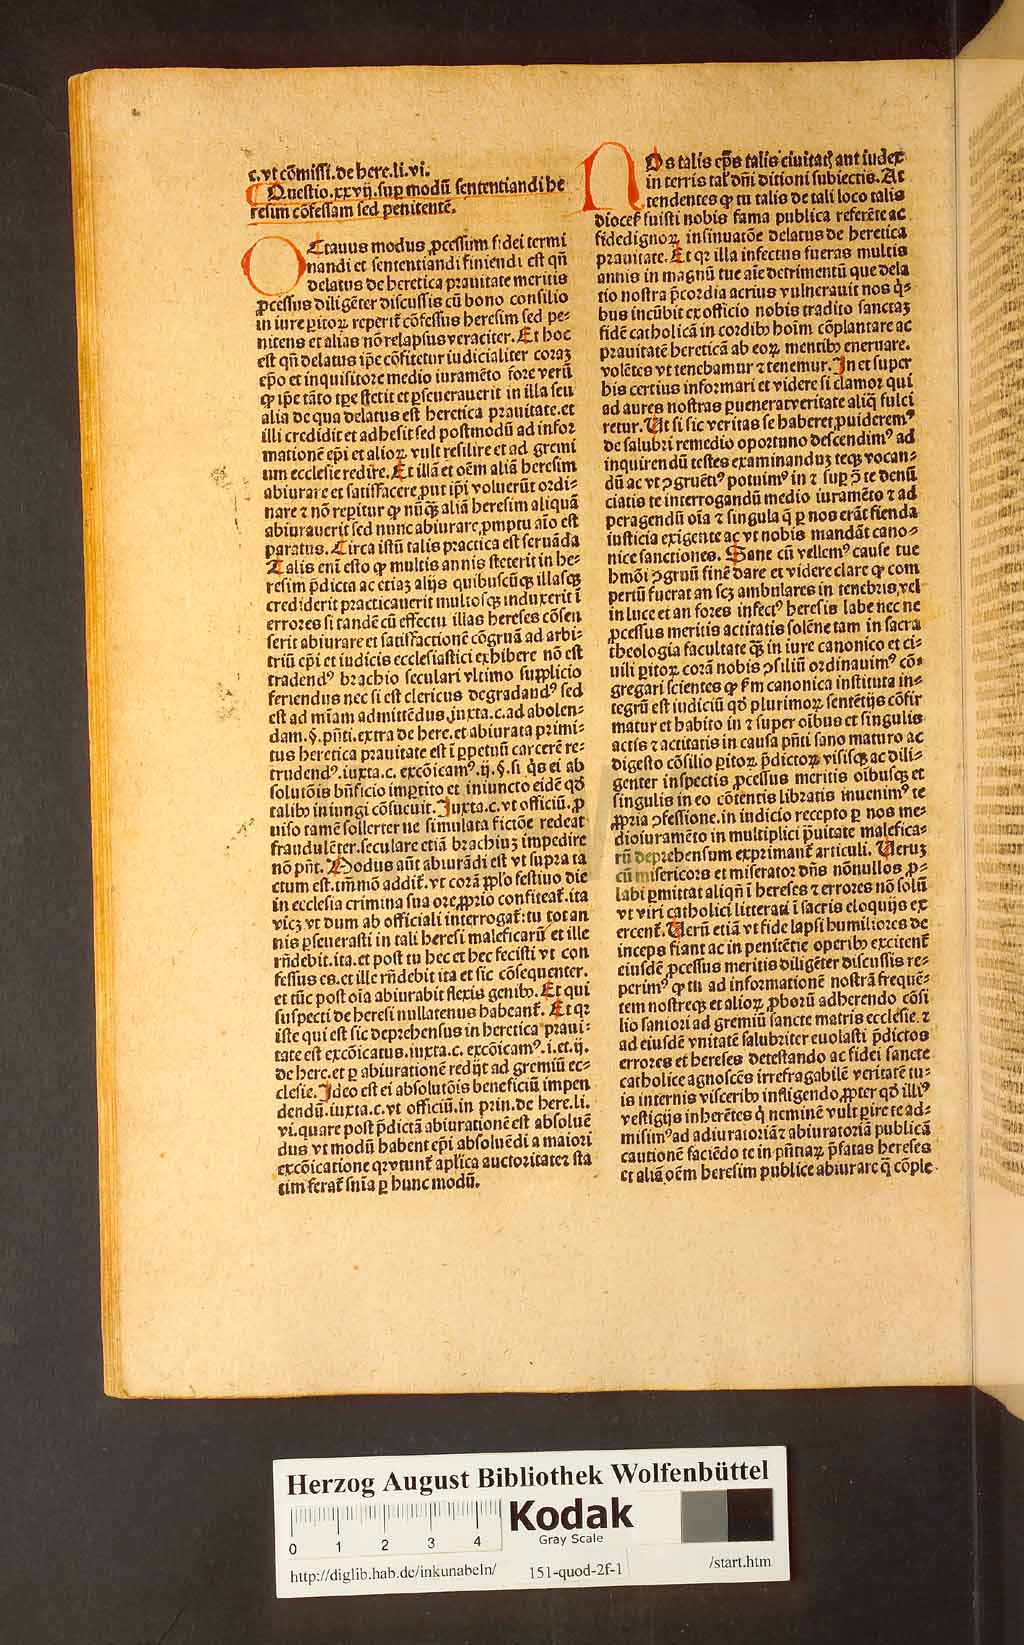 c. vt cōmissi. de here. li. vi.
Questio. xxvij. suꝑ modū sententiandi he
resim cōfessam sed penitentē.
OCtauus modus ꝓcessum fidei termi
nandi et sententiandi finiendi est qñ
delatus de heretica prauitate meritis
ꝓcessus diligēter discussis cū bono consilio
in iure ꝑitoꝝ reperit᷑ cōfessus heresim sed pe⸗
nitens et alias nō relapsus veraciter. Et hoc
est qñ delatus ip̄e cōfitetur iudicialiter coraꝫ
ep̄o et inquisitore medio iuramēto fore verū
ꝙ ip̄e tāto tꝑe stetit et ꝑseuerauerit in illa seu
alia de qua delatus est heretica prauitate. et
illi credidit et adhesit sed postmodū ad infor
mationē ep̄i et alioꝝ vult resilire et ad gremi
um ecclesie redire. Et illā et oēm aliā heresim
abiurare et satisfacere ꝓut ip̄i voluerūt ordi⸗
nare ⁊ nō reꝑitur ꝙ nūꝗ̄ aliā heresim aliquā
abiurauerit sed nunc abiurare, ꝓmptu aīo est
paratus. Circa istū talis practica est seruāda
Talis enī esto ꝙ multis annis steterit in he⸗
resim p̄dicta ac etiaꝫ alijs quibuscūqꝫ illasqꝫ
crediderit practicauerit multosqꝫ induxerit ī
errores si tandē cū effectu illas hereses cōsen
serit abiurare et satisfactionē cōgruā ad arbi⸗
triū ep̄i et iudicis ecclesiastici exhibere nō est
tradendꝰ brachio seculari vltimo supplicio
feriendus nec si est clericus degradandꝰ sed
est ad mīam admittēdus. iuxta. c. ad abolen⸗
dam. §. pn̄ti. extra de here. et abiurata primi⸗
tus heretica prauitate est ī ꝑpetuū carcerē re⸗
trudendꝰ. iuxta. c. excōicamꝰ. ij. §. si q̇s ei ab
solutōis bn̄ficio imꝑtito et iniuncto eidē qd̄
talibꝫ iniungi cōsueuit. Iuxta. c. vt officiū. ꝓ
uiso tamē sollerter ne simulata fictōe redeat
fraudulēter. seculare etiā brachiuꝫ impedire
nō pn̄t. Modus aūt abiurādi est vt supra ta
ctum est. tm̄mō addit᷑. vt corā ꝓplo festiuo die
in ecclesia crimina sua ore ꝓprio confiteat᷑. ita
vicꝫ vt dum ab officiali interrogat᷑: tu tot an
nis ꝑseuerasti in tali heresi maleficarū et ille
rn̄debit. ita. et post tu hec et hec fecisti vt con
fessus es. et ille rn̄debit ita et sic cōsequenter.
et tūc post oīa abiurabit flexis genibꝫ. Et qui
suspecti de heresi nullatenus habeant᷑. Et qꝛ
iste qui est sic deprehensus in heretica praui⸗
tate est excōicatus. iuxta. c. excōicamꝰ. i. et. ij.
de here. et ꝑ abiurationē redijt ad gremiū ec⸗
clesie. Ideo est ei absolutōis beneficiū impen
dendū. iuxta. c. vt officiū. in prin. de here. li.
vi. quare post p̄dictā abiurationē est absoluē
dus vt modū habent ep̄i absoluēdi a maiori
excōicatione qꝛ vtunt᷑ aplica auctoritate ⁊ sta
tim ferat᷑ sn̄ia ꝑ hunc modū.
NOs talis ep̄s talis ciuitatꝭ aut iudex
in terris tal' dn̄i ditioni subiectis. At
tendentes ꝙ tu talis de tali loco talis
diocef' fuisti nobis fama publica referēte ac
fidedignoꝝ insinuatōe delatus de heretica
prauitate. Et qꝛ illa infectus fueras multis
annis in magnū tue aīe detrimentū que dela
tio nostra p̄cordia acrius vulnerauit nos q̇⸗
bus incūbit ex officio nobis tradito sanctaꝫ
fidē catholicā in cordibꝫ hoīm cōplantare ac
prauitatē hereticā ab eoꝝ mentibꝫ eneruare.
volētes vt tenebamur ⁊ tenemur. In et super
his certius informari et videre si clamor qui
ad aures nostras ꝑuenerat veritate aliq̄ fulci
retur. Ut si sic veritas se haberet, ꝓuideremꝰ
de salubri remedio oportuno descendimꝰ ad
inquirendū testes examinanduꝫ teqꝫ vocan⸗
dū ac vt ꝯgruētiꝰ potuimꝰ in ⁊ suꝑ ꝯ̄ te denū
ciatis te interrogandū medio iuramēto ⁊ ad
peragendū oīa ⁊ singula q̄ ꝑ nos erāt fienda
iusticia exigente ac vt nobis mandāt cano⸗
nice sanctiones. Sane cū vellemꝰ cause tue
hmōi ꝯgruū finē dare et videre clare ꝙ com
pertū fuerat an scꝫ ambulares in tenebris, vel
in luce et an fores infectꝰ heresis labe nec ne
ꝓcessus meritis actitatis solēne tam in sacra
theologia facultate ꝗ̄ in iure canonico et ci⸗
uili ꝑitoꝝ corā nobis ꝯsiliū ordinauimꝰ cō⸗
gregari scientes ꝙ fm̄ canonica instituta in⸗
tegrū est iudiciū qd̄ plurimoꝝ sentētijs cōfir
matur et habito in ⁊ super oībus et singulis
actis ⁊ actitatis in causa pn̄ti sano maturo ac
digesto cōsilio ꝑitoꝝ p̄dictoꝝ visisqꝫ ac dili⸗
genter inspectis ꝓcessus meritis oībusqꝫ et
singulis in eo cōtentis libratis inuenimꝰ te
ꝓpria ꝯfessione. in iudicio recepto ꝑ nos me⸗
dio iuramēto in multiplici p̄uitate malefica⸗
rū deprehensum exprimant᷑ articuli. Ueruꝫ
cū misericors et miserator dn̄s nōnullos ꝓ⸗
labi ꝑmittat aliqn̄ ī hereses ⁊ errores nō solū
vt viri catholici litterati ī sacris eloquijs ex
ercent᷑. Uerū etiā vt fide lapsi humiliores de
inceps fiant ac in penitētie operibꝫ excitent᷑
eiusdē ꝓcessus meritis diligēter discussis re⸗
perimꝰ ꝙ tu ad informationē nostrā frequē⸗
tem nostreqꝫ et alioꝝ ꝓborū adherendo cōsi
lio saniori ad gremiū sancte matris ecclesie. ⁊
ad eiusdē vnitatē salubriter euolasti p̄dictos
errores et hereses detestando ac fidei sancte
catholice agnoscēs irrefragabilē veritatē tu⸗
is internis visceribꝫ infligendo, ꝓpter qd̄ illiꝰ
vestigijs inherētes q̇ neminē vult ꝑire te ad⸗
misimꝰ ad adiuratoriā ⁊ abiuratoriā publicā
cautionē faciēdo te in pn̄tiaꝝ p̄fatas hereses
et aliā oēm heresim publice abiurare q̄ cōple⸗
Herzog August Bibliothek Wolfenbüttel
0 1 2 3 4
Kodak
Gray Scale
http://diglib.hab.de/inkunabeln/ 151-quod-2f-1 /start.htm